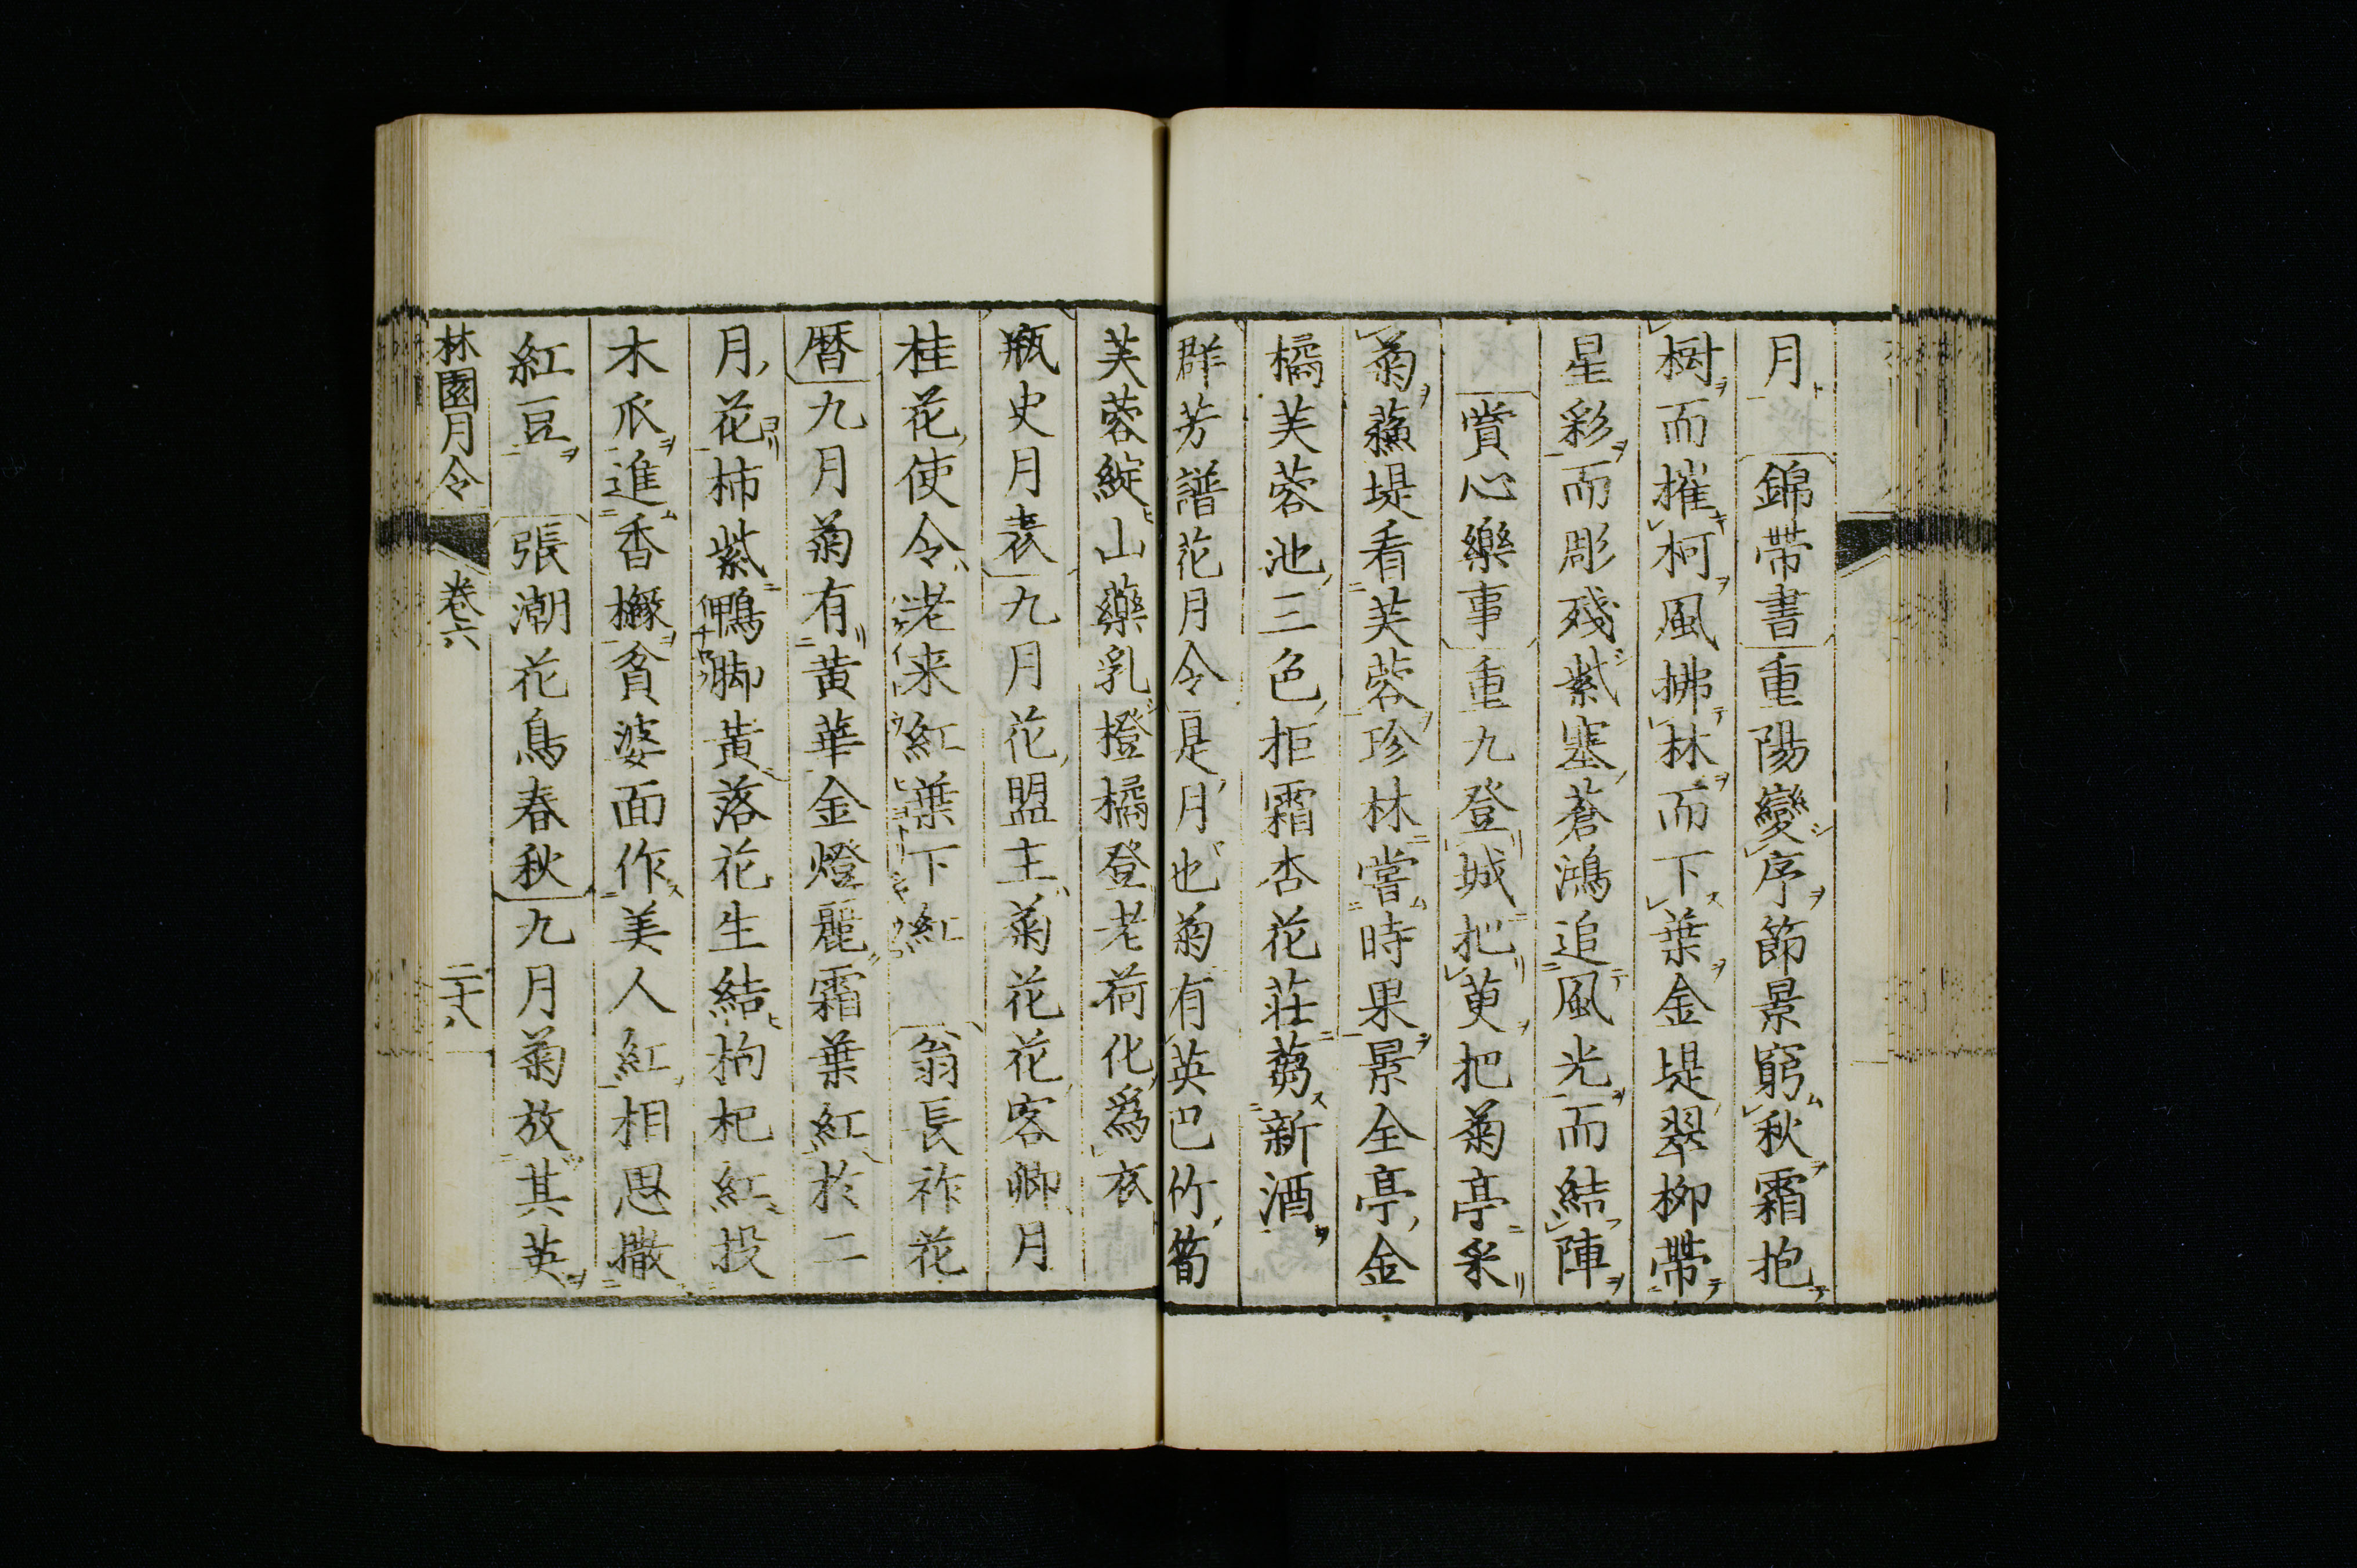 月 錦帶書 重陽變序節景窮秋霜抱
樹而摧柯風拂林而下葉金堤翠柳帶
星彩而彫殘紫塞蒼鴻追風光而結陣
賞心樂事 重九登城把萸把菊亭采
菊蘓堤看芙蓉珍林嘗時果景全亭金
橘芙蓉池三色拒霜杏花莊蒭新酒
群芳譜花月令 是月也菊有英巴竹筍
芙蓉綻山藥乳橙橘登老荷化為衣
瓶史月表 九月花盟主菊花花客卿月
桂花使令老来紅葉下紅 翁長祚花
暦 九月菊有黃華金燈麗霜葉紅於二
月花柿紫鴨脚黃落花生結枸杞紅投
木爪進香櫞貧婆面作美人紅相思撒
紅豆 張潮花鳥春秋 九月菊放其英
林園月令 卷六 二十八